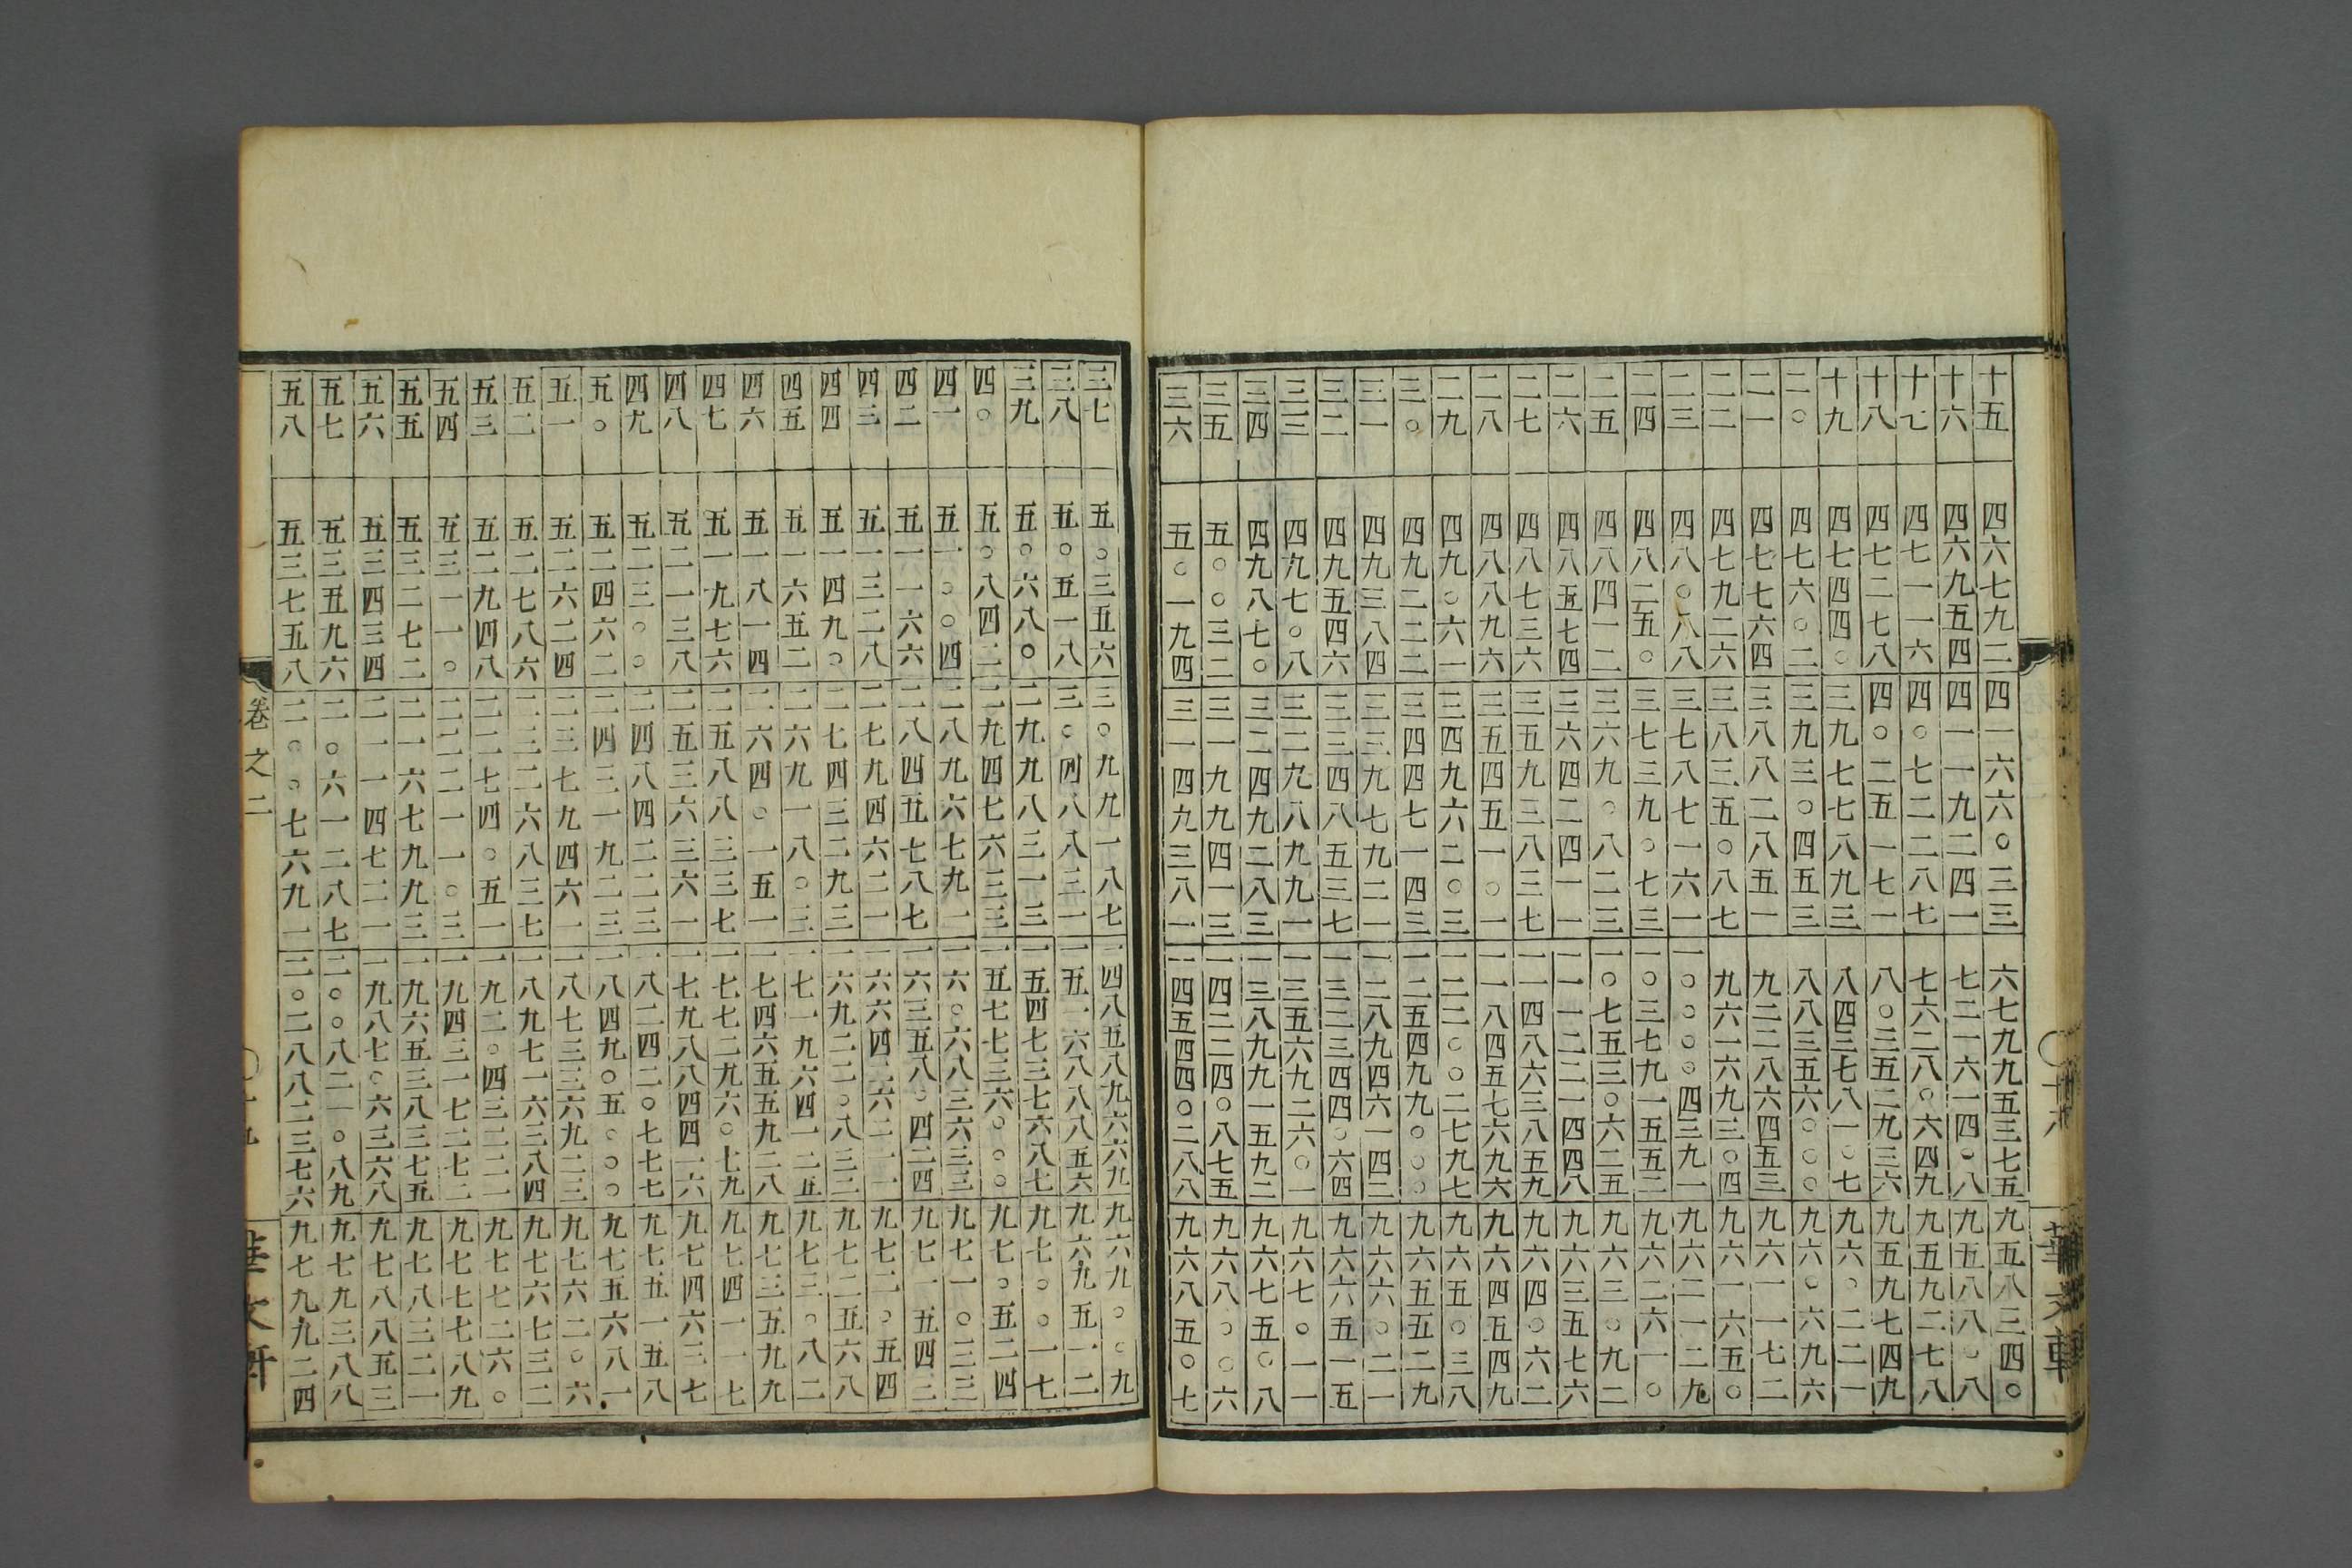 十五 四六七九二 四一六六〇三三 六七九九五三七五 九五八三四〇
十六 四六九五四 四一一九二四一 七二一六一四〇八 九五八八〇八
十七 四七一一六 四〇七二二八七 七六二八〇六四九 九五九二七八
十八 四七二七八 四〇二五一七一 八〇三五二九三六 九五九七四九
十九 四七四四〇 三九七七八九三 八四三七八一〇七 九六〇二二一
二〇 四七六〇二 三九三〇四五三 八八三五六〇〇〇 九六〇六九六
二一 四七七六四 三八八二八五一 九二二八六四五三 九六一一七二
二二 四七九二六 三八三五〇八七 九六一六九三〇四 九六一六五〇
二三 四八〇八八 三七八七一六一 一〇〇〇〇四三九一 九六二一二九
二四 四八二五〇 三七三九〇七三 一〇三七九一五五二 九六二六一〇
二五 四八四一二 三六九〇八二三 一〇七五三〇六二五 九六三〇九二
二六 四八五七四 三六四二四一一 一一一二二一四四八 九六三五七六
二七 四八七三六 三五九三八三七 一一四八六三八五九 九六四〇六二
二八 四八八九六 三五四五一〇一 一一八四五七六九六 九六四五四九
二九 四九〇六一 三四九六二〇三 一二二〇〇二七九七 九六五〇三八
三〇 四九二二二 三四四七一四三 一二五四九九〇〇〇 九六五五二九
三一 四九三八四 三三九七九二一 一二八九四六一四二 九六六〇二一
三二 四九五四六 三三四八五三七 一三二三四四〇六四 九六六五一五
三三 四九七〇八 三二九八九九一 一三五六九二六〇一 九六七〇一一
三四 四九八七〇 三二四九二八三 一三八九九一五九二 九六七五〇八
三五 五〇〇三二 三一九九四一三 一四二二四〇八七五 九六八〇〇六
三六 五〇一九四 三一四九三八一 一四五四四〇二八八 九六八五〇七
三七 五〇三五六 三〇九九一八七 一四八五八九六六九 九六九〇〇九
三八 五〇五一八 三〇四八八三一 一五一六八八八五六 九六九五一二
三九 五〇六八〇 二九九八三一三 一五四七三七六八七 九七〇〇一七
四〇 五〇八四二 二九四七六三三 一五七七三六〇〇〇 九七〇五二四
四一 五一〇〇四 二八九六七九一 一六〇六八三六三三 九七一〇三三
四二 五一一六六 二八四五七八七 一六三五八〇四二四 九七一五四三
四三 五一三二八 二七九四六二一 一六六四二六二一一 九七二〇五四
四四 五一四九〇 二七四三二九三 一六九二二〇八三二 九七二五六八
四五 五一六五二 二六九一八〇三 一七一九六四一二五 九七三〇八二
四六 五一八一四 二六四〇一五一 一七四六五五九二八 九七三五九九
四七 五一九七六 二五八八三三七 一七七二九六〇七九 九七四一一七
四八 五二一三八 二五三六三六一 一七九八八四四一六 九七四六三七
四九 五二三〇〇 二四八四二二三 一八二四二〇七七七 九七五一五八
五〇 五二四六二 二四三一九二三 一八四九〇五〇〇〇 九七五六八一
五一 五二六二四 二三七九四六一 一八七三三六九二三 九七六二〇六
五二 五二七八六 二三二六八三七 一八九七一六三八四 九七六七三二
五三 五二九四八 二二七四〇五一 一九二〇四三二二一 九七七二六〇
五四 五三一一〇 二二二一一〇三 一九四三一七二七二 九七七七八九
五五 五三二七二 二一六七九九三 一九六五三八三七五 九七八三二一
五六 五三四三四 二一一四七二一 一九八七〇六三六八 九七八八五三
五七 五三五九六 二〇六一二八七 二〇〇八二一〇八九 九七九三八八
五八 五三七五八 二〇〇七六九一 二〇二八八二三七六 九七九九二四
卷之二